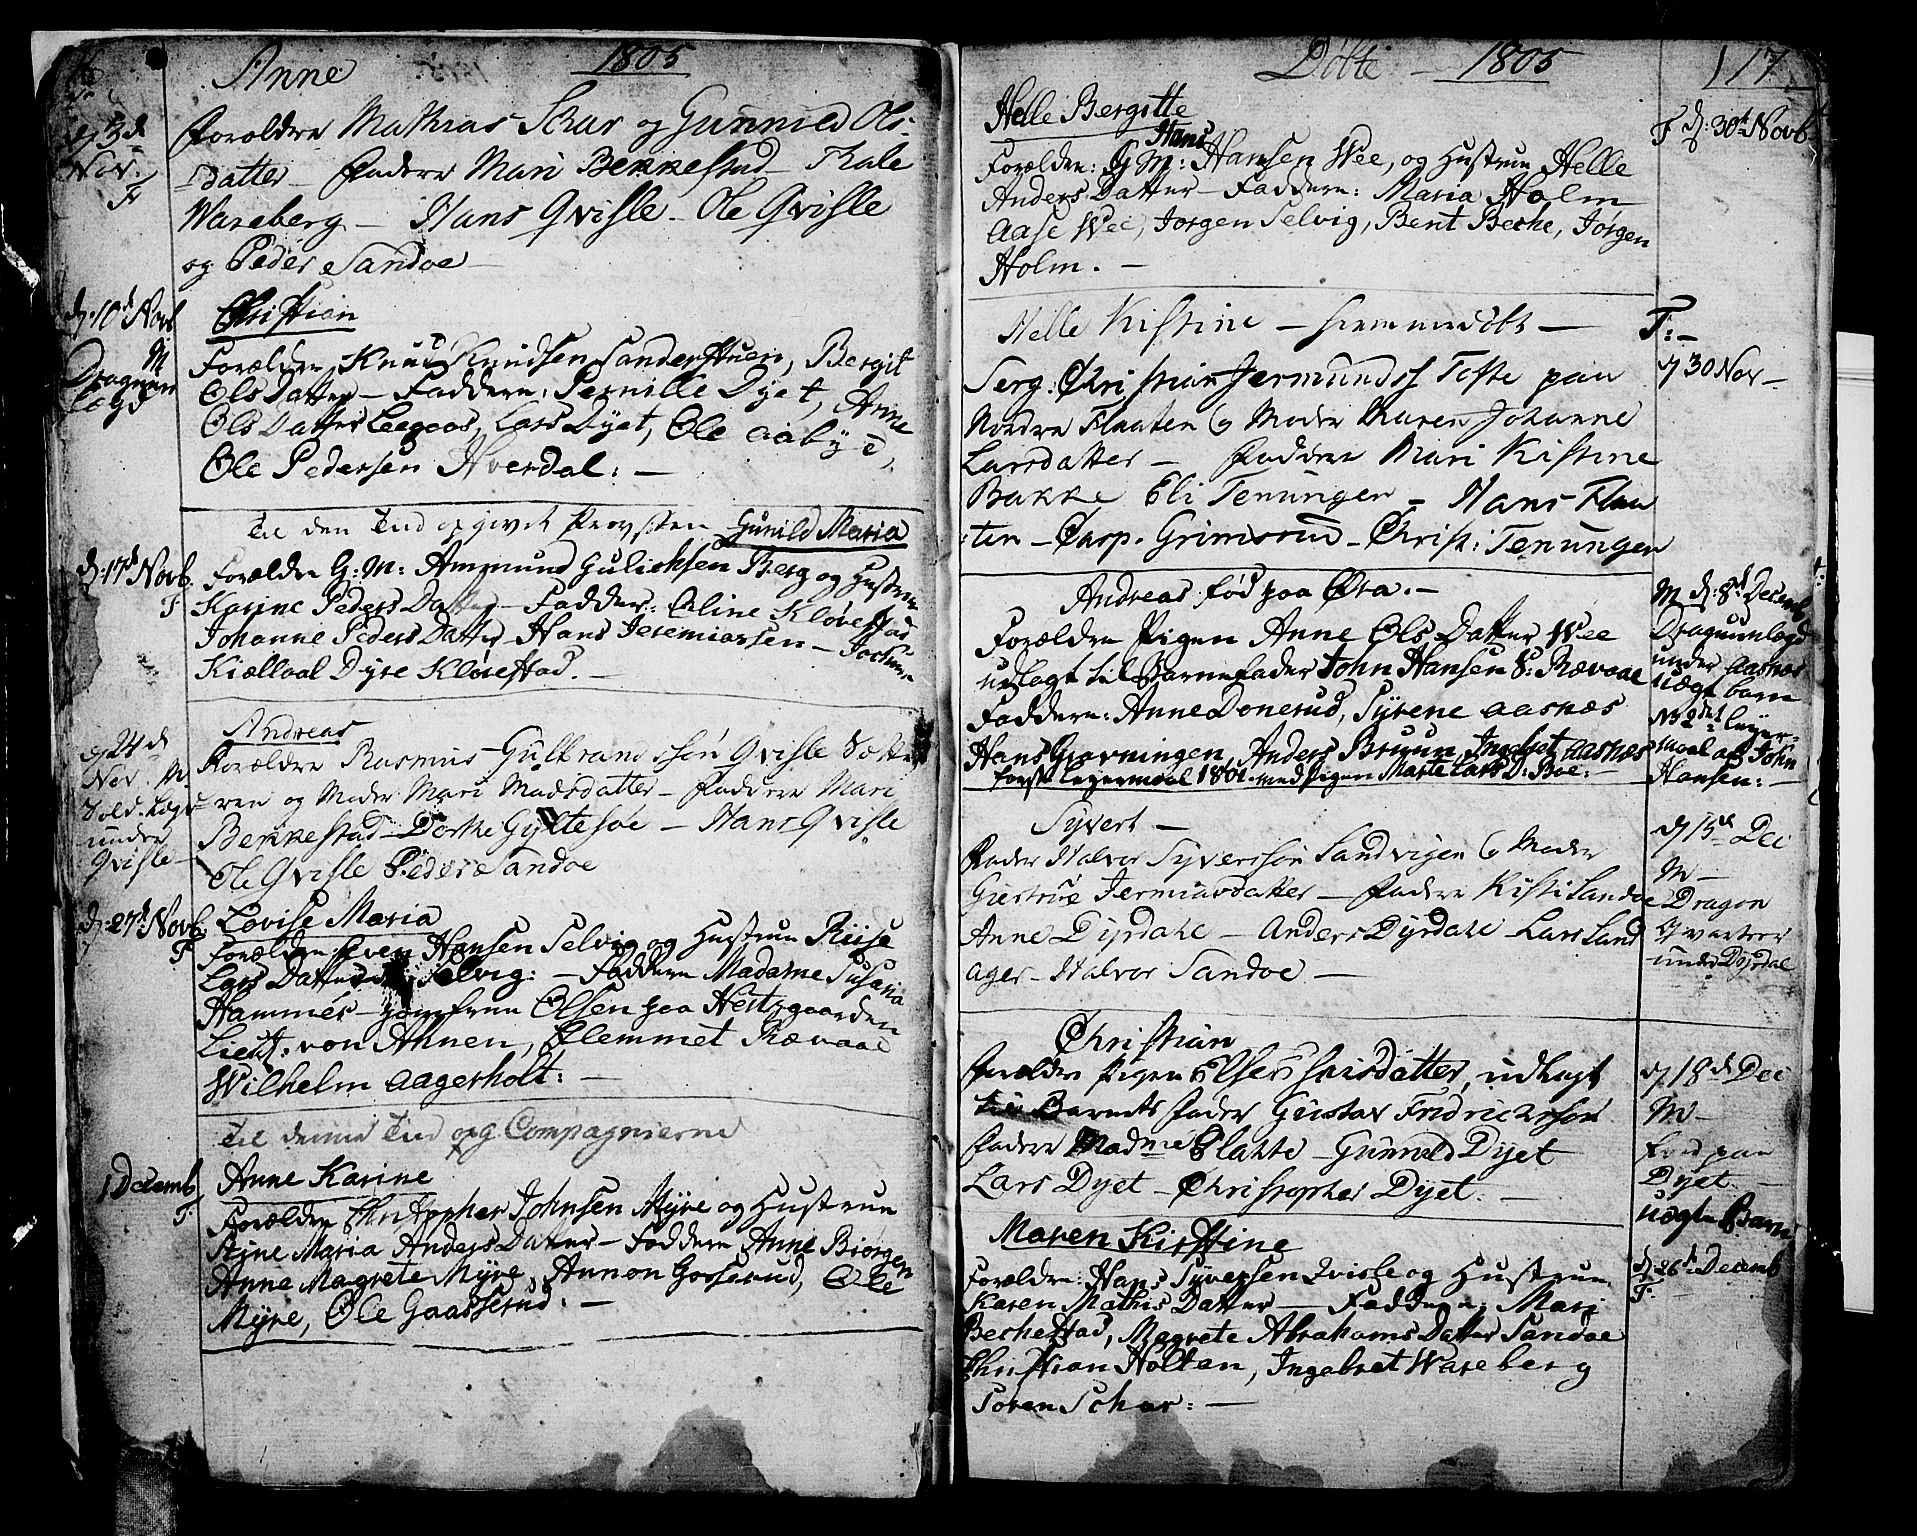 1805
Anne
d 3 d
Nov.
F
Forældre Mathias Schur og Gunnild Ols-
datter - Faddere Mari Bekkestad - Thale
Wareberg - Hans Qvisle - Ole Qvisle
og Peder Sandøe -
d. 10d Novb
M
Dragoun
Lægd
Christian
Forældre Knud Knudsen Sanderstuen, Bergit
Ols Datter - Faddere: Pernille Dyet, Anne
Ols Datter Leegaas, Lars Dyet, Ole Aabye
Ole Pedersen Hverdal: -
Til den Tid opgivet Provsten Gunild Maria
d: 17d Novb.
F
Forældre G: M: Ammund Gulichsen Berg og Hustrue
Karine Peders Datter - Fadder: Aline Kløvestad
Johanne Peders Datter - Hans Jeremiassen - Jochum
Kiællaal Dyre Kløvestad. -
d 24d
Nov. M
Sold. Lægd
under
Qvisle -
Andreas
Forældre Rasmus Gulbrandssøn Qvisle Sætte
ren og Moder Mari Madsdatter - Faddere Mari
Bekkestad - Dorthe Gyltesøe - Hans Qvisle
Ole Qvisle Peder Sandøe
d: 27d Novb.
F
Lovise Maria
Forældre Even Hansen Selvig og Hustrue Riise
Lars Datter Selvig: - Faddere Madame Susana
Hammer - Jomfrue Olsen paa Hestegaarden
Lieut: von Ahnen, Clemmet Rævaae
Wilhelm Aagerholt: -
Til denne Tid opg Compagnierne
1 Decemb
F
Anne Karine
Forældre Christopher Johnsen Myre og Hustrue
Stine Maria Anders Datter - Faddere Anne Biørgen
Anne Magrete Myre, Annon Gosserud, Ole
Myre, Ole Gaasserud. -
Døbte - 1805
117
Helle Bergitte
F d: 30t Novb
Hans
Forældre: G M: Hansen Wee, og Hustrue Helle
Anders Datter - Faddere: Maria Holm
Aase Wee, Jørgen Selvig, Bent Beche, Jørgen
Holm. -
Helle Kistine - hiemmedøbt -
F: -
d 30 Nov -
Serg: Christian Jermundss Tofte paa
Nordre Flaaten og Moder Karen Johanne
Larsdatter - Faddere Mari Kistine
Bakke Eli Tenungen - Hans Flaa
ten - Casp. Grimsrud - Christ: Tenungen
Andreas fød paa Øra. -
M d: 8d Decemb
Dragounlægd
under Aasnæs
Uægte barn
No 2det leyer-
maal af John
Hansen: -
Forældre Pigen Anne Ols Datter Wee
udlagt til Barnefader John Hansen S: Rævaae
Faddere: Anne Donerud, Syrene Aasnæs
Hans Gravningen, Anders Bruun Indset Aasnæs
første leyermaal 1801 med Pigen Marte Lars D: Boe: -
Syvert -
d 15d Dec
M -
Dragon
Qvarteer
under Dyrdal
Fader Halvor Syverssøn Sandvigen og Moder
Giertrue Jermiasdatter - Faddere Kisti Sandøe
Anne Dyrdale - Anders Dyrdale - Lars Sand
ager - Halvor Sandøe -
Christian
d 18d Dec
M -
fød paa
Dyet. -
uægte Barn
Forældre Pigen Else Larsdatter, udlagt
til Barnets Fader Gustav Fridrichssøn
Faddere Madme Platte - Gunnild Dyet
Lars Dyet - Christopher Dyet. -
Maren Kirstine
d 26t Decemb
F.
Forældre: Hans Syversen Qvisle og Hustrue
Karen Mathis Datter - Faddere, Mari
Bechestad, Magrete Abrahams Datter Sandøe
Christian Holten, Ingebret Wareberg
Søren Schur: -